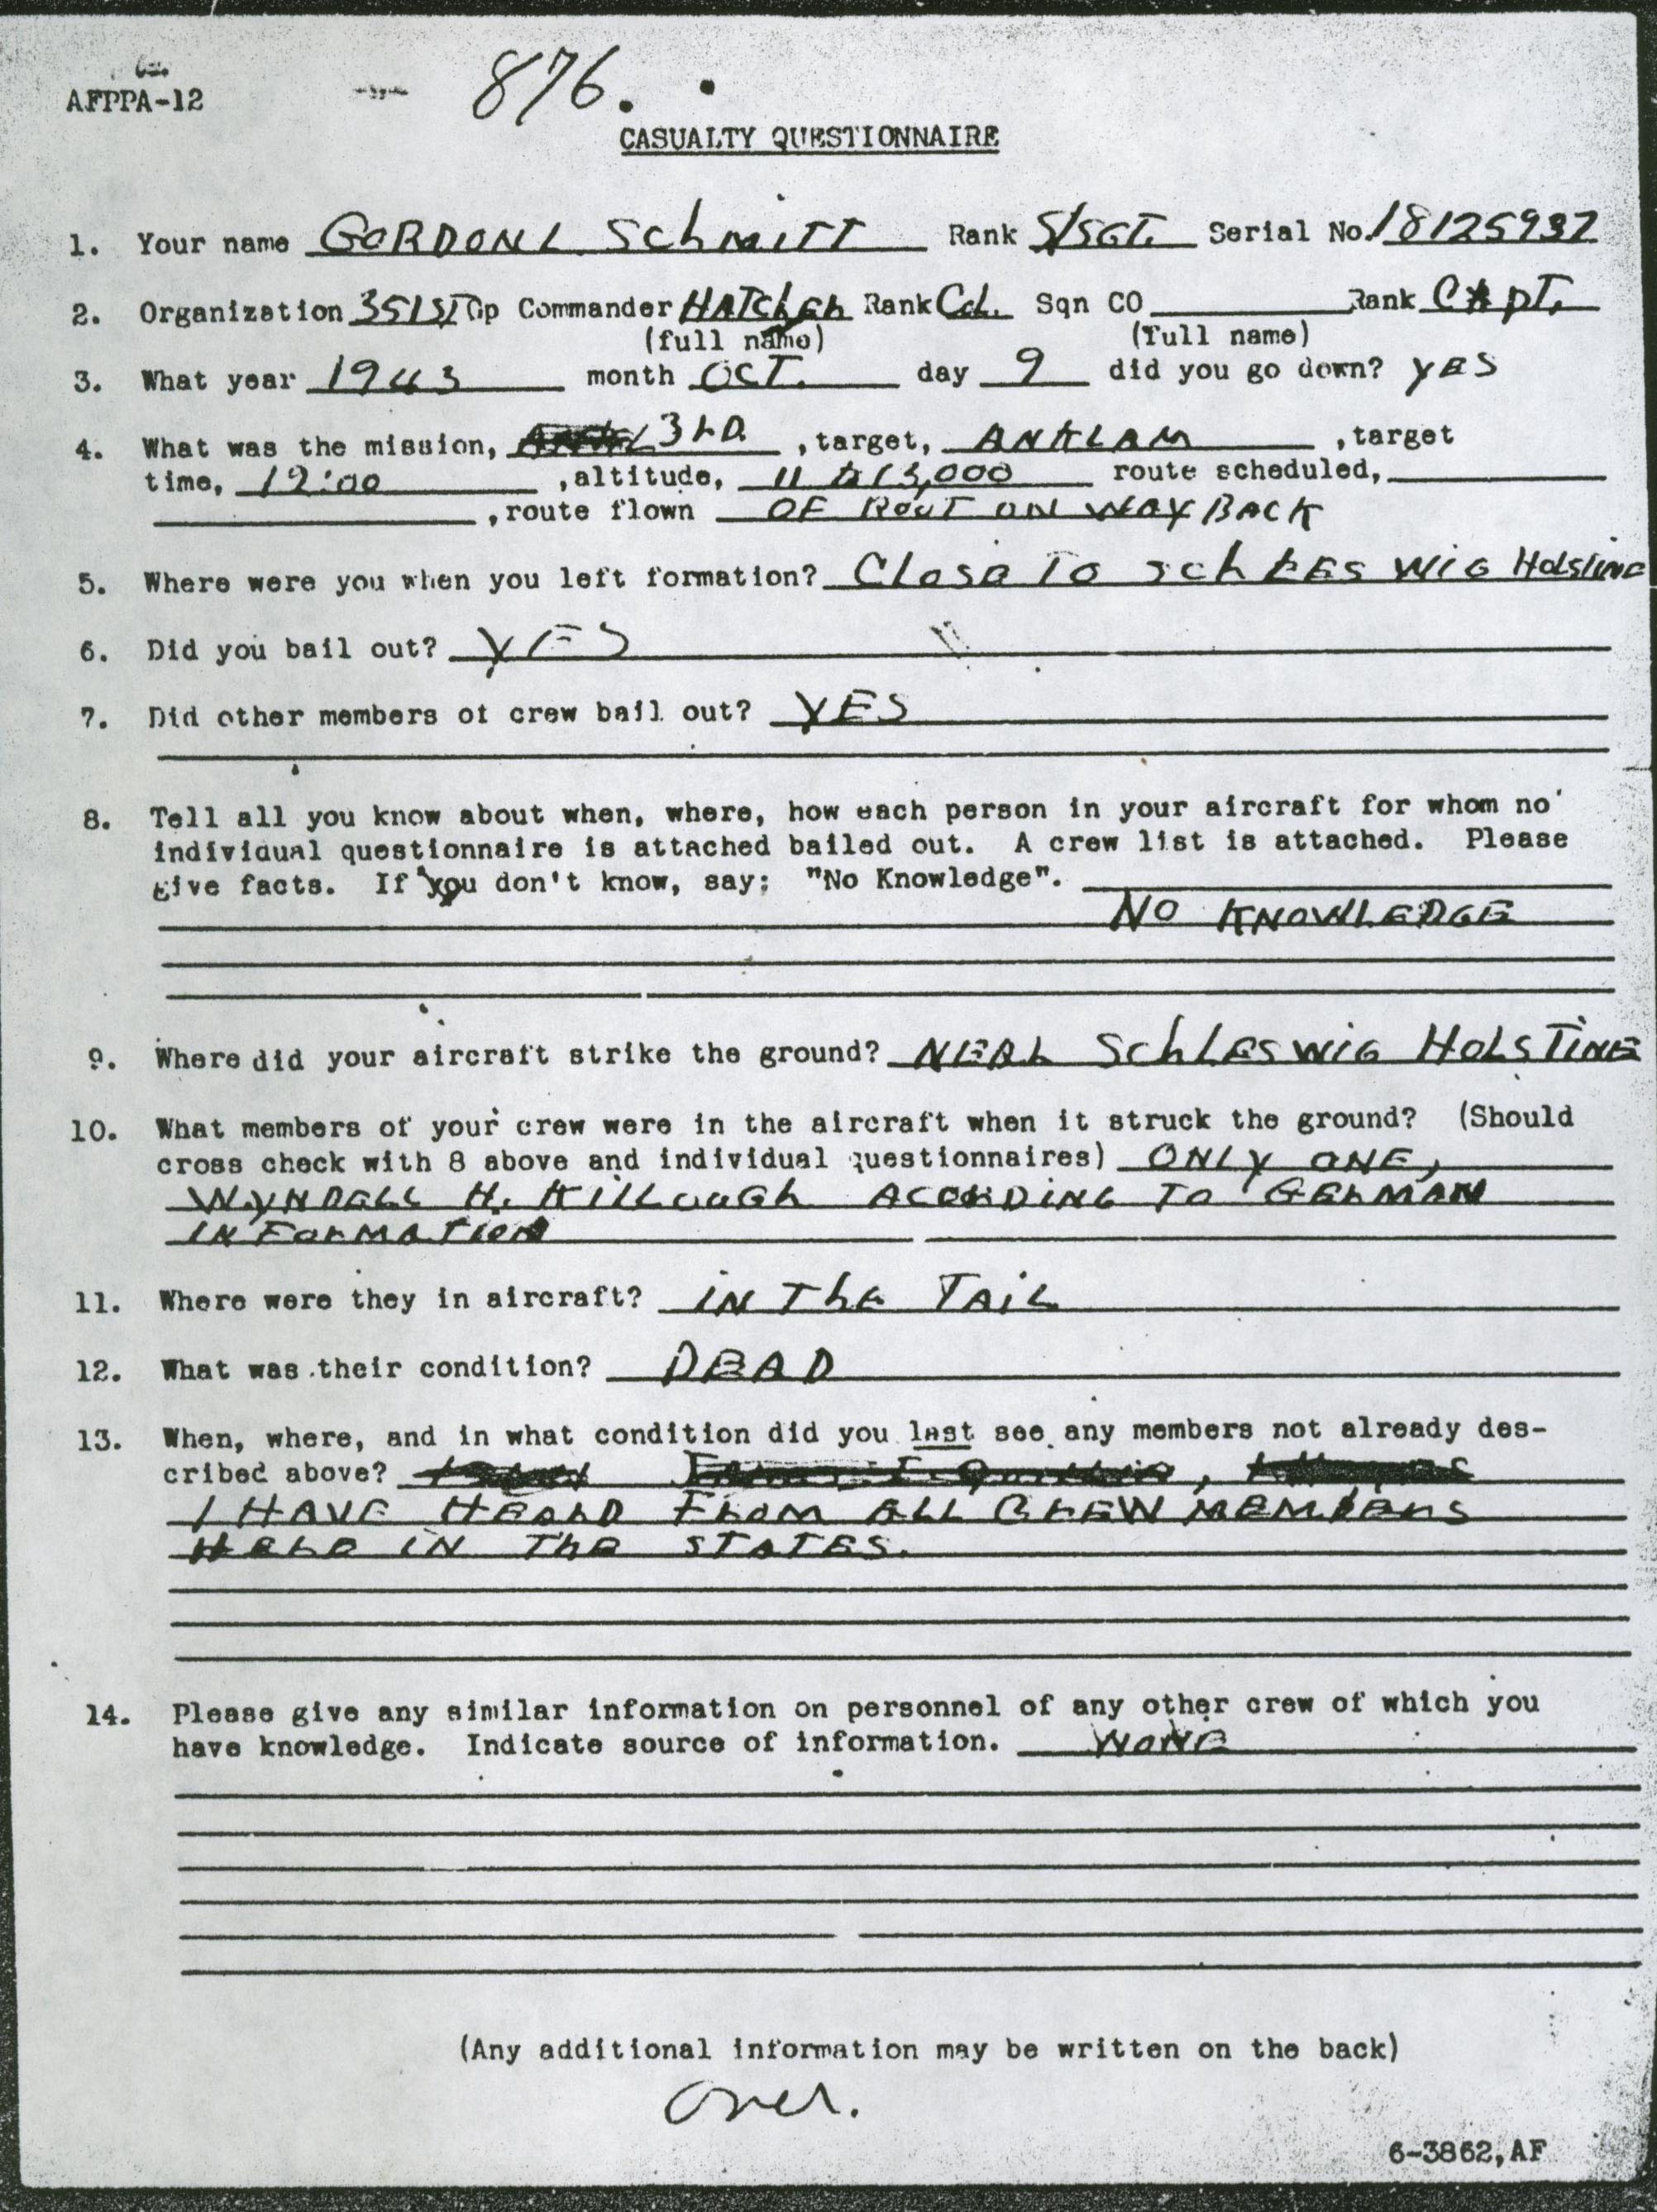 AFPPA-12
876.
CASUALTY QUESTIONNAIRE
1. Your name GORDON L. SchmITT Rank S/SGT. Serial No. 18125937
2. Organization 351ST Gp Commander HATCHER Rank Col. Sqn CO Rank CAPT.
(full name) (full name)
3. What year 1943 month OCT. day 9 did you go down? YES
4. What was the mission, 3RD , target, ANKLAM , target
time, 12:00 , altitude, 11 to 13,000 route scheduled,
, route flown OF ROUT ON WAY BACK
5. Where were you when you left formation? Close To SchLESWIG Holstine
6. Did you bail out? YES
7. Did other members of crew bail out? YES
8. Tell all you know about when, where, how each person in your aircraft for whom no
individual questionnaire is attached bailed out. A crew list is attached. Please
give facts. If you don't know, say: "No Knowledge".
NO KNOWLEDGE
9. Where did your aircraft strike the ground? NEAR SchLESWIG HOLSTINE
10. What members of your crew were in the aircraft when it struck the ground? (Should
cross check with 8 above and individual questionnaires) ONLY ONE,
WYNDELL H. KILLOUGH ACORDING TO GERMAN
INFORMATION
11. Where were they in aircraft? IN ThE TAIL
12. What was their condition? DEAD
13. When, where, and in what condition did you last see any members not already des-
cribed above?
I HAVE HEARD FROM ALL CREW MEMBERS
HERE IN ThE STATES.
14. Please give any similar information on personnel of any other crew of which you
have knowledge. Indicate source of information. NONE
(Any additional information may be written on the back)
over.
6-3862,AF